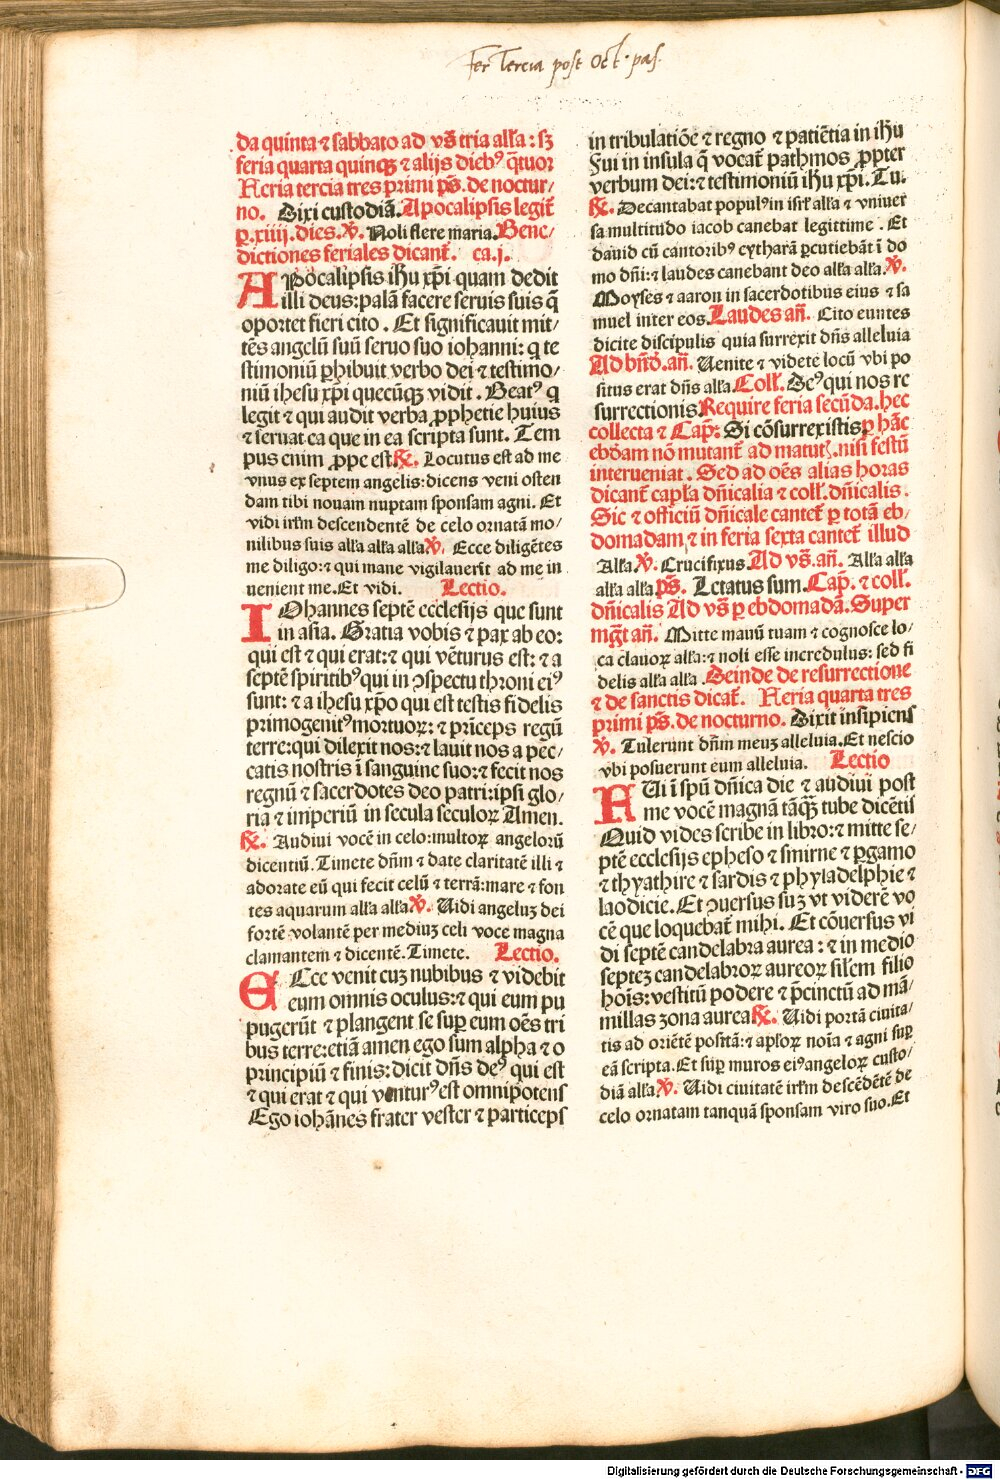 Fer Tercia post Oct. pas.
da quinta ⁊ sabbato ad vs̄ tria all̄a: sꝫ
feria quarta quinqꝫ ⁊ alijs diebꝰ q̄tuor
Feria tercia tres primi ps̄. de noctur/
no. Dixi custodiā. Apocalipsis legit̄
ꝑ.xiiij.dies. ℣. Noli flere maria. Bene/
dictiones feriales dicant̄. ca.j.
APocalipsis ih̄u xp̄i quam dedit
illi deus: palā facere seruis suis q̄
oportet fieri cito. Et significauit mit/
tēs angelū suū seruo suo iohanni: q te
stimoniū ꝑhibuit verbo dei ⁊ testimo/
niū ihesu xp̄i quecūqꝫ vidit. Beatꝰ q
legit ⁊ qui audit verba ꝓphetie huius
⁊ seruat ea que in ea scripta sunt. Tem
pus enim ꝓpe est. ℟. Locutus est ad me
vnus ex septem angelis: dicens veni osten
dam tibi nouam nuptam sponsam agni. Et
vidi irl̄m descendentē de celo ornatā mo/
nilibus suis all̄a all̄a all̄a ℣. Ecce diligētes
me diligo: ⁊ qui mane vigilauerīt ad me in
uenient me. Et vidi. Lectio.
IOhannes septē ecclesijs que sunt
in asia. Gratia vobis ⁊ pax ab eo:
qui est ⁊ qui erat: ⁊ qui vēturus est: ⁊ a
septē spiritibꝰ qui in ꝯspectu throni eiꝰ
sunt: ⁊ a ihesu xp̄o qui est testis fidelis
primogenitꝰ mortuoꝝ: ⁊ prīceps regū
terre: qui dilexit nos: ⁊ lauit nos a pec/
catis nostris ī sanguine suo: ⁊ fecit nos
regnū ⁊ sacerdotes deo patri: ipsi glo/
ria ⁊ imperiū in secula seculoꝝ Amen.
℟. Audiui vocē in celo: multoꝝ angeloꝝū
dicentiū. Timete dn̄m ⁊ date claritatē illi ⁊
adorate eū qui fecit celū ⁊ terrā: mare ⁊ fon
tes aquarum all̄a all̄a ℣. Uidi angeluꝫ dei
fortē volantē per mediuꝫ celi voce magna
clamantem ⁊ dicentē. Timete. Lectio.
ECce venit cuꝫ nubibus ⁊ videbit
eum omnis oculus: ⁊ qui eum pu
pugerūt ⁊ plangent se suꝑ eum oēs tri
bus terre: etiā amen ego sum alpha ⁊ o
principiū ⁊ finis: dicit dn̄s deꝰ qui est
⁊ qui erat ⁊ qui venturꝰ est omnipotens
Ego iohānes frater vester ⁊ particeps
in tribulatiōe ⁊ regno ⁊ patiētia in ih̄u
Fui in insula q̄ vocat̄ pathmos ꝓpter
verbum dei: ⁊ testimoniū ih̄u xp̄i. Tu.
℟. Decantabat populꝰ in isrl̄ all̄a ⁊ vniuer
sa multitudo iacob canebat legittime. Et
dauid cū cantoribꝰ cytharā ꝑcutiebāt ī do
mo dn̄i: ⁊ laudes canebant deo all̄a all̄a. ℣.
Moyses ⁊ aaron in sacerdotibus eius ⁊ sa
muel inter eos. Laudes an̄. Cito euntes
dicite discipulis quia surrexit dn̄s alleluia
Ad bn̄d̄. an̄. Uenite ⁊ videte locū vbi po
situs erat dn̄s all̄a. Coll̄. Deꝰ qui nos re
surrectionis. Require feria secūda. hec
collecta ⁊ Cap̄: Si cōsurrexistis ꝑ hāc
ebdam nō mutant̄ ad matut̄. nisi festū
interueniat. Sed ad oēs alias horas
dicant̄ capl̄a dn̄icalia ⁊ coll̄. dn̄icalis.
Sic ⁊ officiū dn̄icale cantet̄ ꝑ totā eb/
domadam, ⁊ in feria sexta cantet̄ illud
All̄a ℣. Crucifixus. Ad vs̄. an̄. All̄a all̄a
all̄a all̄a ps̄. Letatus sum. Cap̄. ⁊ coll̄.
dn̄icalis Ad vs̄ ꝑ ebdomadā. Super
mg̅t an̄. Mitte manū tuam ⁊ cognosce lo/
ca clauoꝝ all̄a: ⁊ noli esse incredulus: sed fi
delis all̄a all̄a. Deinde de resurrectione
⁊ de sanctis dicat̄. Feria quarta tres
primi ps̄. de nocturno. Dixit insipiens
℣. Tulerunt dn̄m meuꝫ alleluia. Et nescio
vbi posuerunt eum alleluia. Lectio
FUi ī sp̄u dn̄ica die ⁊ audiui post
me vocē magnā tāqꝫ tube dicētis
Quid vides scribe in libro: ⁊ mitte se/
ptē ecclesijs epheso ⁊ smirne ⁊ ꝑgamo
⁊ thyathire ⁊ sardis ⁊ phyladelphie ⁊
laodicie. Et ꝯuersus suꝫ vt viderē vo
cē que loquebat̄ mihi. Et cōuersus vi
di septē candelabra aurea: ⁊ in medio
septeꝫ candelabroꝝ aureoꝝ sil̄em filio
hoīs: vestitū podere ⁊ p̄cinctū ad mā/
millas zona aurea ℟. Uidi portā ciuita/
tis ad oriētē positā: ⁊ apl̄oꝝ noīa ⁊ agni suꝑ
eā scripta. Et suꝑ muros eiꝰ angeloꝝ custo/
diā all̄a ℣. Uidi ciuitatē irl̄m descēdētē de
celo ornatam tanquā sponsam viro suo. Et
Digitalisierung gefördert durch die Deutsche Forschungsgemeinschaft - DFG